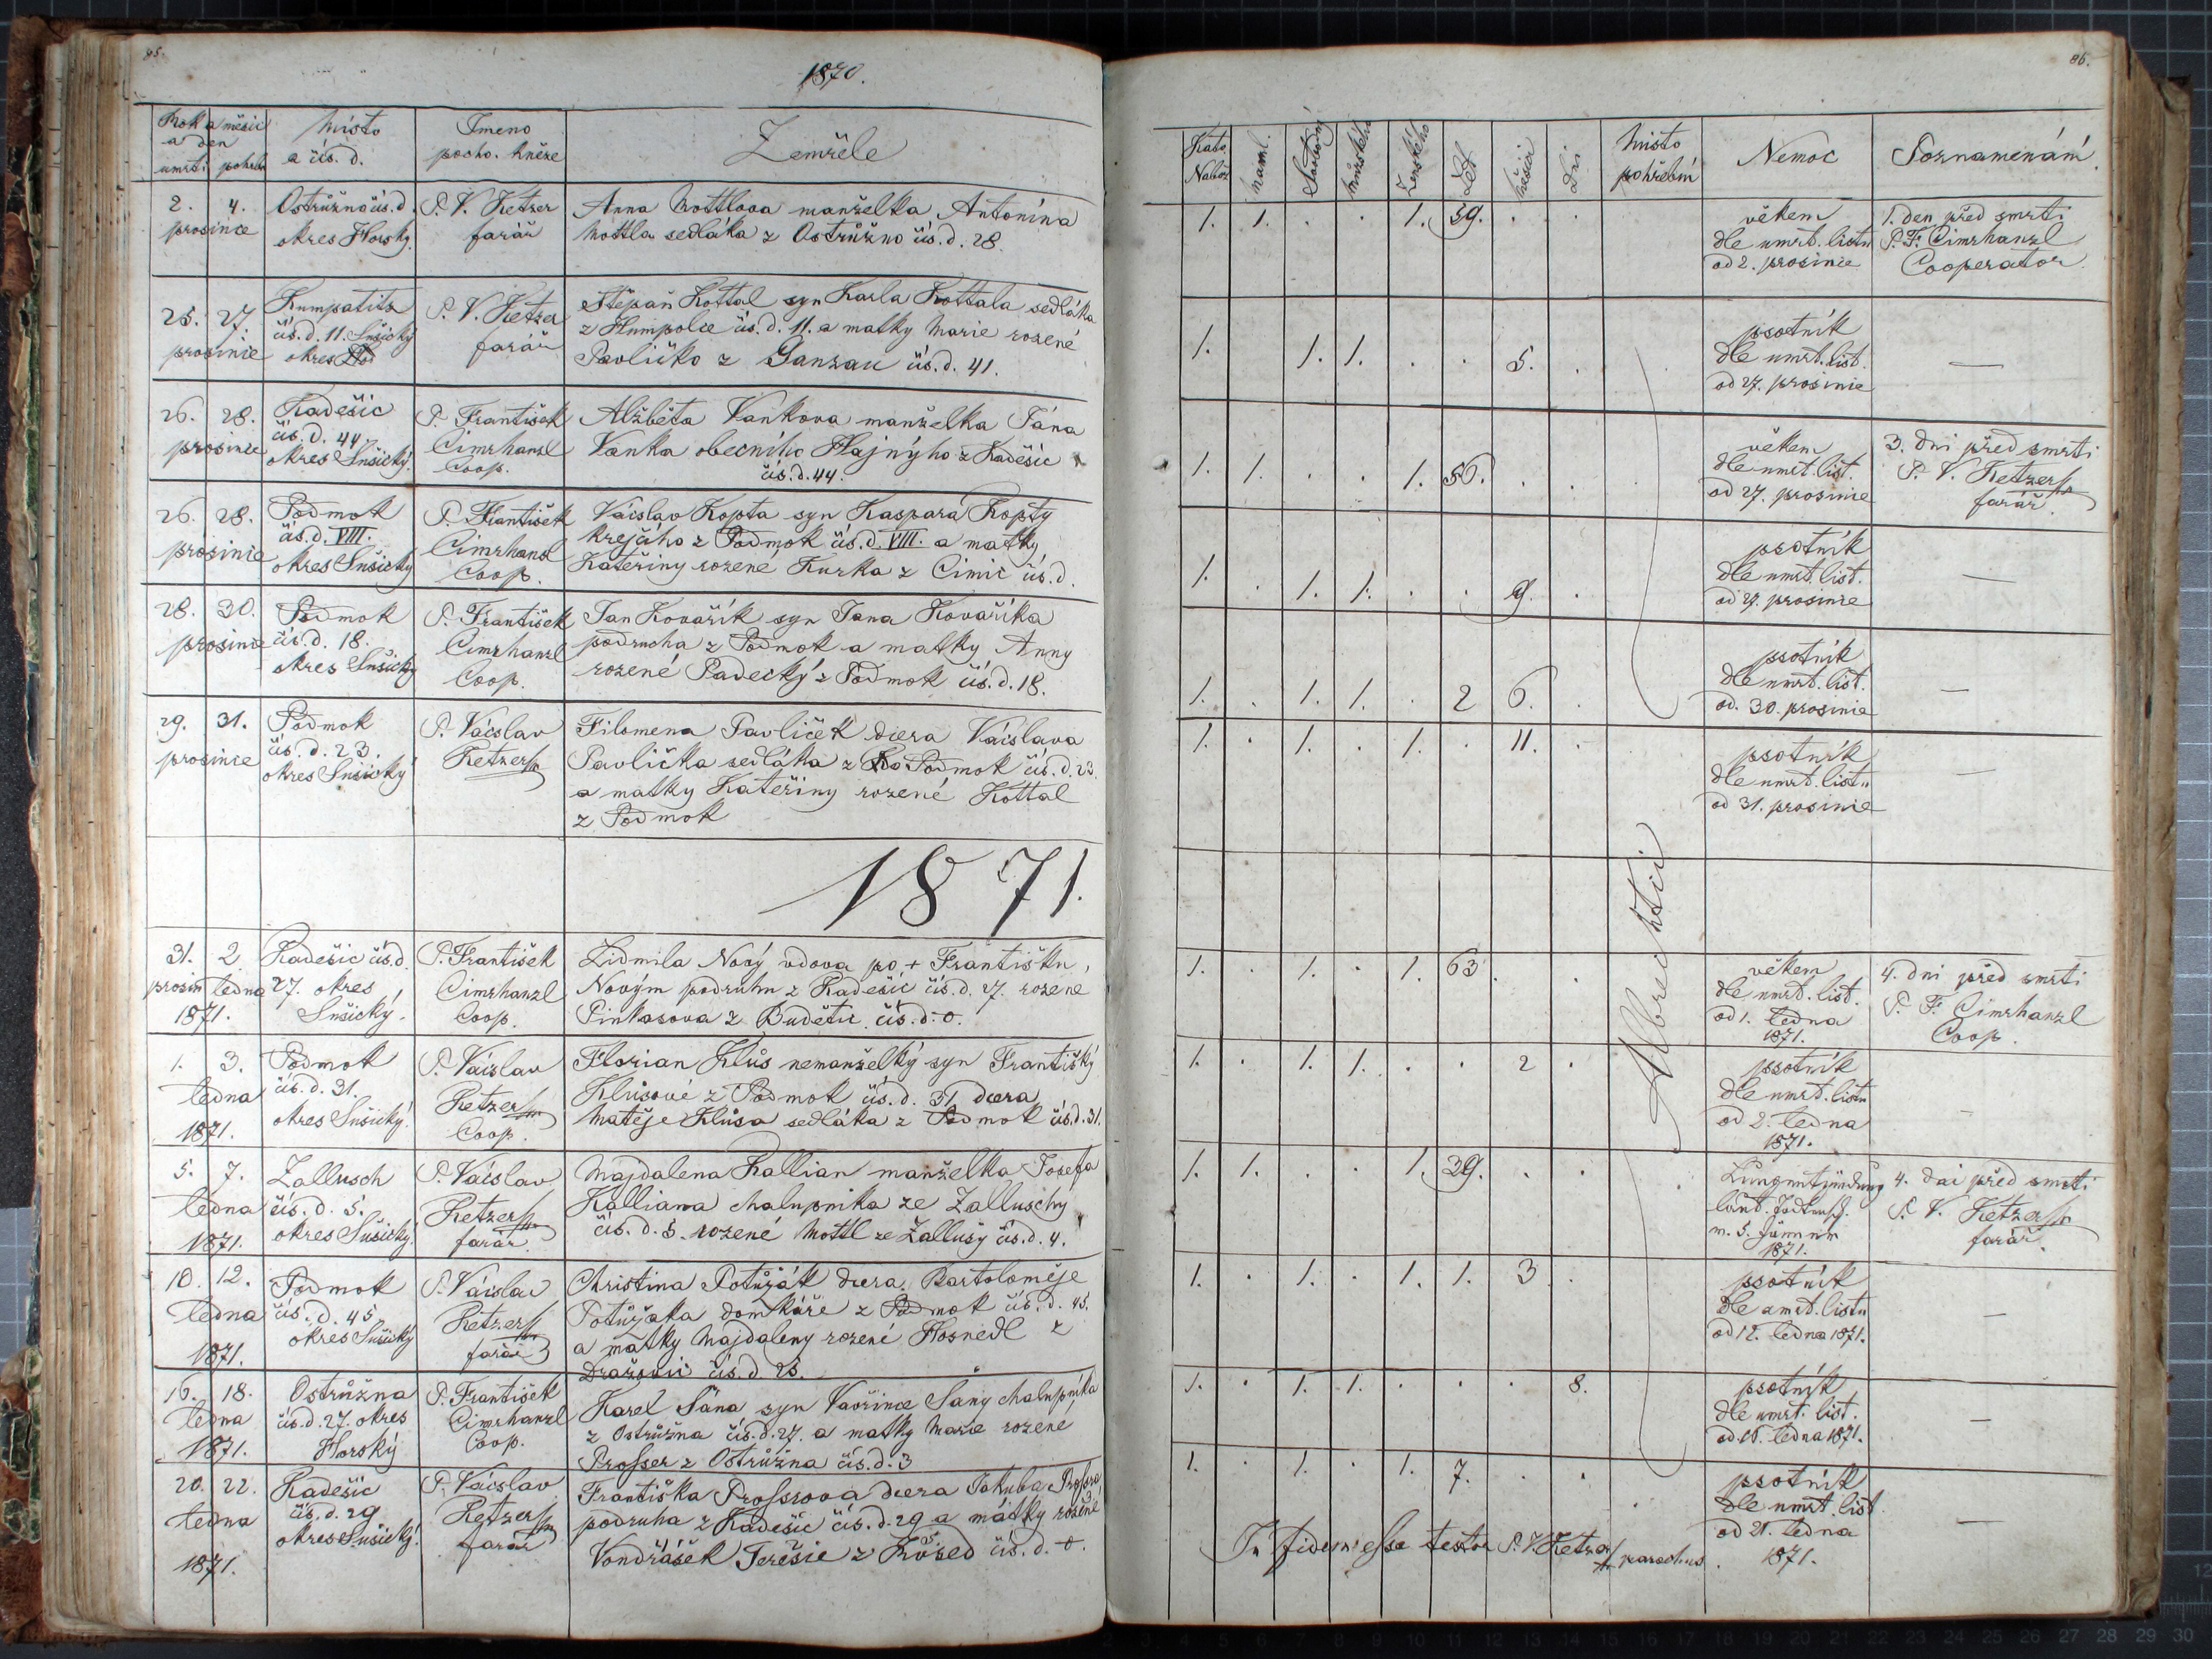 85.
1870.
Rok a měsíc
a den
umrtí pohřeb
Místo
a čís. d.
Jmeno
pocho. kněze
Zemřele
2. 4.
prosince
Ostružna čís. d.
okres Horský.
P. V. Ketzer
farář
Anna Mottlova manželka Antonína
Mottla sedláka z Ostružno čís. d. 28.
25. 27.
prosinie
Kumpatitz
čís. d. 11. Sušický
okres
P. V. Ketzer
farář
Štěpán Kottal syn Karla Kottala sedláka
z Humpolce čís. d. 11. a matky Marie rozené
Pavličko z Ganzau čís. d. 41.
26. 28.
prosince
Kadešic
čís. d. 44.
okres Sušický.
P. František
Cimrhanzl
Coop.
Alžběta Vankova manželka Jána
Vanka obecního Hajnýho z Kadešic
čís. d. 44.
26. 28.
prosinie
Podmok
čís. d. VIII.
okres Sušický
P. František
Cimrhanzl
Coop.
Václav Kopta syn Kaspara Kopty
krejčího z Podmok čís. d. VIII. a matky
Kateřiny rozené Kurka z Cimic čís. d.
28. 30.
prosinie
Podmok
čís. d. 18.
okres Sušický
P. František
Cimrhanzl
Coop.
Jan Kovařík syn Jana Kovaříka
podrucha z Podmok a matky Anny
rozené Padecký z Podmok čís. d. 18.
29. 31.
prosinie
Podmok
čís. d. 23.
okres Sušický
P. Václav
Ketzer
Filomena Pavliček dcera Václava
Pavlička sedláka z Podmok čís. d. 23.
a matky Kateřiny rozené Kottal
z Podmok
1871.
31. 2.
prosin ledna
1871.
Kadešic čís. d.
27. okres
Sušický.
P. František
Cimrhanzl
Coop.
Lidmila Nový vdova po + Františku,
Novým podruhu z Kadešic čís. d. 27. rozené
Pinkasova z Budětic čís. d. 0.
1. 3.
ledna
1871.
Podmok
čís. d. 31.
okres Sušický.
P. Václav
Ketzer
Coop.
Florian Klus nemanželký syn Františky
Klusové z Podmok čís. d. 31. dcera
Matěje Klusa sedláka z Podmok čís. d. 31.
5. 7.
ledna
1871.
Zallusch
čís. d. 5.
okres Sušický.
P. Václav
Ketzer
farář.
Majdalena Kallian manželka Josefa
Kalliana chalupníka ze Zalluschy
čís. d. 5. rozené Mottl ze Zallušy čís. d. 4.
10. 12.
ledna
1871.
Podmok
čís. d. 45
okres Sušický
P. Václav
Ketzer
farář
Christina Potužák dcera Bartoloměje
Potužaka domkáře z Podmok čís. d. 45.
a matky Majdaleny rozené Hosnedl z
Dražovic čís. d. 25.
16. 18.
ledna
1871.
Ostružna
čís. d. 27. okres
Horský
P. František
Cimrhanzl
Coop.
Karel Šána syn Vavřince Šany chalupníka
z Ostružna čís. d. 27. a matky Marie rozené
Prosser z Ostružna čís. d. 3
20. 22.
ledna
1871.
Kadešic
čís. d. 29
okres Sušický.
P. Václav
Ketzer
farář
Františka Prossrova dcera Jakuba
podruha z Kadešic čís. d. 29 a mátky rozené
Vondrášek Terešie z čís. d. 0.
86.
Kato.
Nabož
Manž.
Svobodný
Mužského
Ženského
Let
Měsíců
Dní
Místo
pohřební
Nemoc
Poznamenání
1. 1. . . 1. 59. . .
věkem
dle umrt. listu
od 2. prosinie
1. den před smrti
P. F. Cimrhanzl
Cooperator
1. 1. 1. . . 5. .
psotník
dle umrt. list.
od 27. prosinie
—
1. 1. . . 1. 50. . .
věkem
dle umrt. list.
od 27. prosinie
3. dni před smrti
P. V. Ketzer
farář.
1. . 1. 1. . . 9. .
psotník
dle umrt. list.
od 27. prosinie
—
1. . 1. 1. . 2 6. .
psotník
dle umrt. list.
od. 30. prosinie
—
1. . 1. . 1. . 11. .
psotník
dle umrt. listu
od 31. prosinie
—
Albrechtici
1. . 1. . 1. 63. . .
věkem
dle umrt. list.
od 1. ledna
1871.
4. dni před smrti
P. F. Cimrhanzl
Coop.
1. . 1. 1. . . 2 .
psotník
dle umrt. listu
od 2. ledna
1871.
—
1. 1. . . 1. 39. . .
Lungenentzündung
1871.
4. dni před smrti
P. V. Ketzer
farář.
1. . 1. . 1. 1. 3 .
psotník
dle umrt. listu
od 12. ledna 1871.
—
1. . 1. 1. . . . 8.
psotník
dle umrt. list.
od 16. ledna 1871.
—
1. . 1. . 1. 7. . .
psotník
dle umrt. list
od 21. ledna
1871.
—
In fidem esse testor P. V. Ketzer parochus.